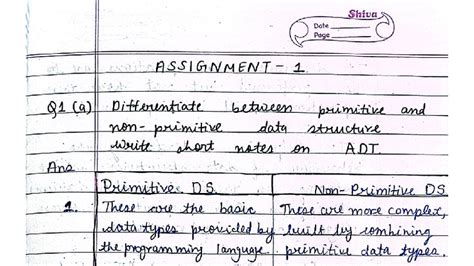 Shiva
Date
Page
ASSIGNMENT - 1
Q1 (a) Differentiate between primitive and
non-primitive data structure
write short notes on ADT.
Ans
Primitive DS Non-Primitive DS
1. These are the basic These are more complex,
data types provided by built by combining
the programming language. primitive data types.